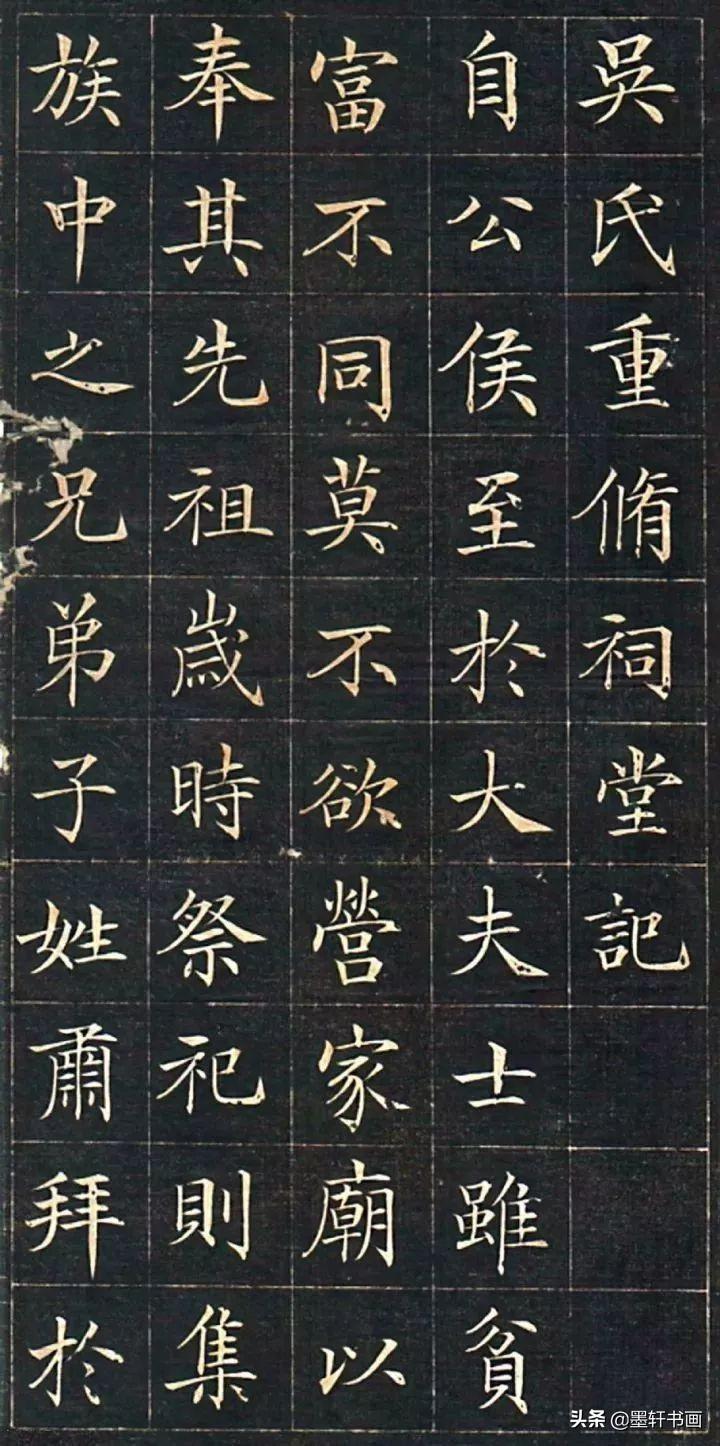 吳氏重脩祠堂記
自公侯至於大夫士雖貧
富不同莫不欲營家廟以
奉其先祖歲時祭祀則集
族中之兄弟子姓肅拜於
头条 @墨轩书画